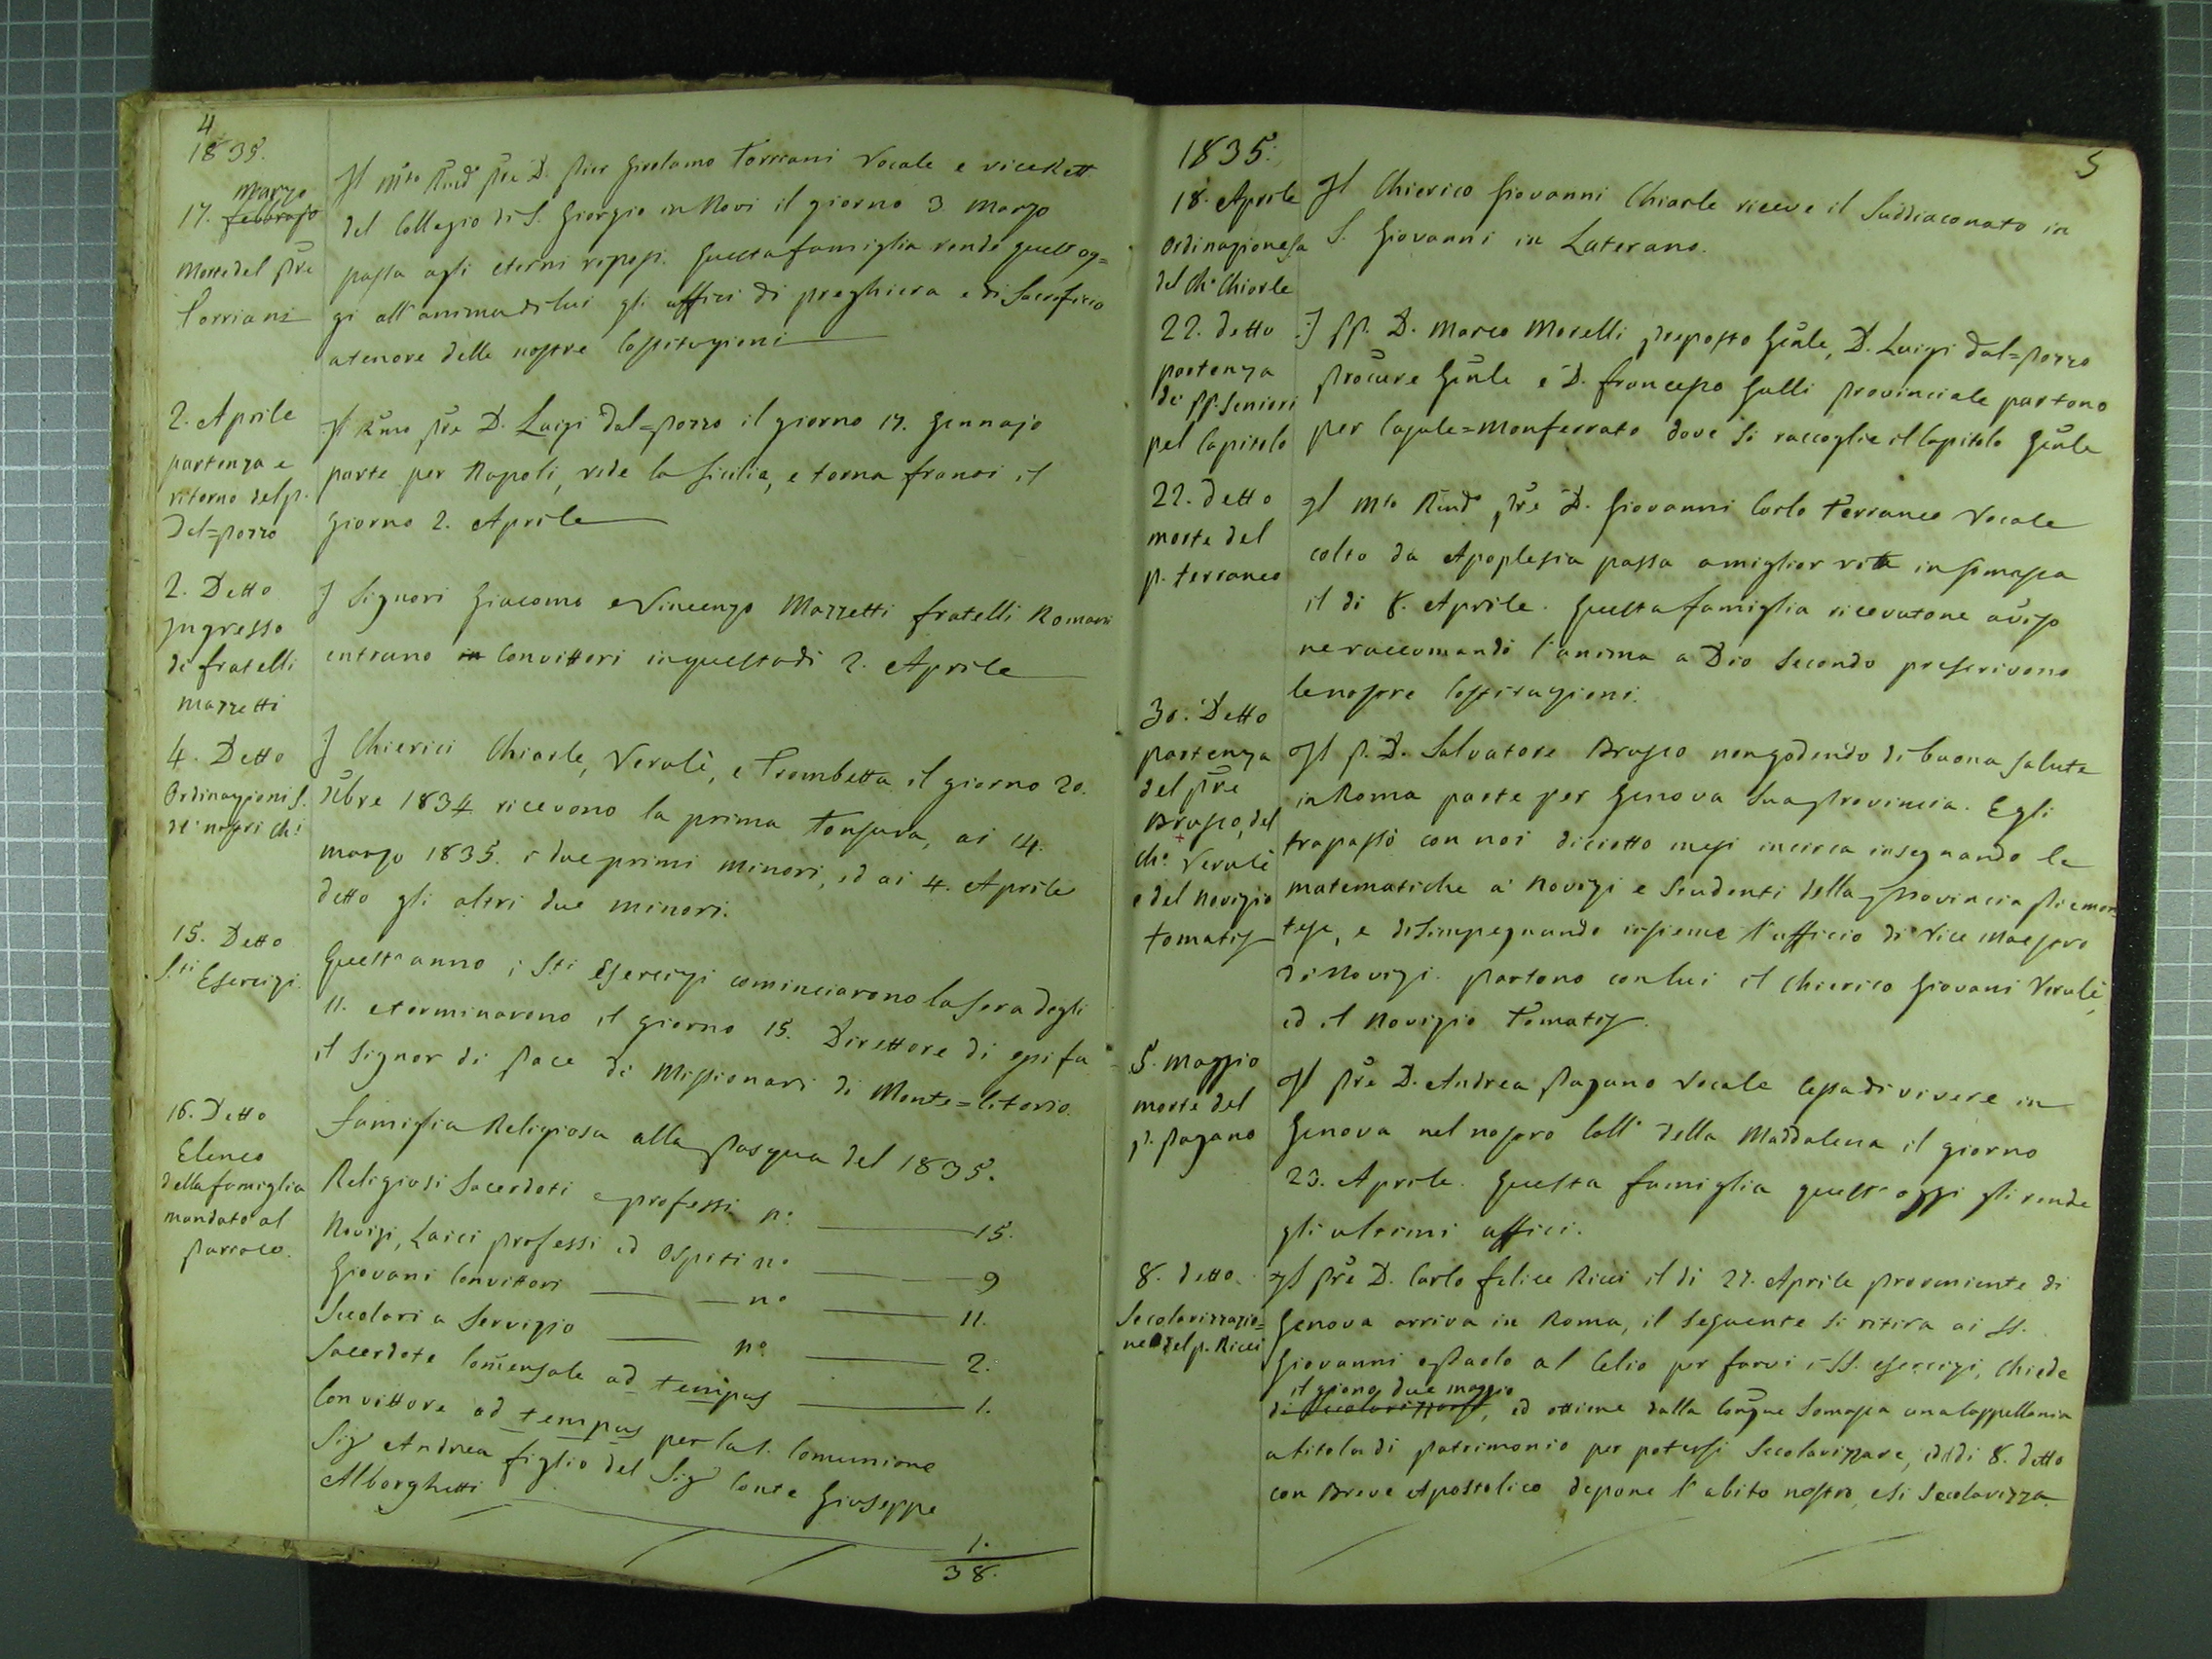 4
1835.
Marzo
17. febbrajo
Morte del Pre
Torriani
Il Mto Rndo Pre D. Pier Girolamo Torriani Vocale e viceRett
del Collegio di S. Giorgio in Novi il giorno 3 Marzo
passa agli eterni riposi. Questa famiglia rende quest'og=
gi all'anima di lui gli uffici di preghiera e di Sacrificio
a tenore delle nostre Costituzioni
2. Aprile
partenza e
ritorno del p.
Dal=pozzo
Il Rmo Pre D. Luigi Dal=pozzo il giorno 17. Gennajo
parte per Napoli, vede la Sicilia, e torna fra noi il
giorno 2. Aprile
2. Detto
Ingresso
di fratelli
Mazzetti
I Signori Giacomo e Vincenzo Mazzetti fratelli Romani
entrano in Convittori in questo dì 2. Aprile
4. Detto
Ordinazioni S.
de' nostri Chi
I Chierici Chiarle, Verulè, e Trombetta il giorno 20.
Xbre 1834 ricevono la prima Tonsura, ai 14.
marzo 1835. i due primi Minori, ed ai 4. Aprile
detto gli altri due minori.
15. Detto
S.ti Esercizi.
Quest'anno i Sti Esercizi cominciarono la sera degli
11. e terminarono il giorno 15. Direttore di essi fu
il Signor di Pace de' Missionari di Monte=Citorio.
16. Detto
Elenco
della famiglia
mandato al
Parroco.
Famiglia Religiosa alla Pasqua del 1835.
Religiosi Sacerdoti e professi no 15.
Novizi, Laici professi ed Ospiti no 9
Giovani Convittori no 11.
Secolari a Servizio no 2.
Sacerdote Comensale ad tempus 1.
Convittore ad tempus per la S. Comunione
Sigr Andrea figlio del Sigr Conte Giuseppe
Alborghetti 1.
38.
5
1835.
18. Aprile
Ordinazione Sa
del Cho Chiarle
Il Chierico Giovanni Chiarle riceve il Suddiaconato in
S. Giovanni in Laterano.
22. detto
partenza
de' PP. Seniori
pel Capitolo
I PP. D. Marco Morelli preposto Genle, D. Luigi Dal=pozzo
Procure Genle e D. Francesco Galli Provinciale partono
per Casale=Monferrato dove si raccoglie il Capitolo Genle
22. detto
morte del
p. Terraneo
Il Mto Rndo Pre D. Giovanni Carlo Terraneo Vocale
colto da Apoplesia passa a miglior vita in Somasca
il di 8. Aprile. Questa famiglia ricevutone aviso
ne raccomandò l'anima a Dio secondo prescrivono
le nostre Costituzioni.
30. Detto
partenza
del Pre
Brusco, del
Cho Verulè
e del Novizio
Tomatis
Il P. D. Salvatore Brusco non godendo di buona salute
in Roma parte per Genova sua Provincia. Egli
trapassò con noi diciotto mesi incirca insegnando le
matematiche a' Novizi e Studenti della Provincia Piemon
tese, e disimpegnando insieme l'ufficio di Vice Maestro
di Novizi. Partono con lui il Chierico Giovani Verulè,
ed il Novizio Tomatis.
5. Maggio
morte del
p. Pagano
Il Pre D. Andrea Pagano Vocale cessa di vivere in
Genova nel nostro Coll° della Maddalena il giorno
23. Aprile. Questa famiglia quest'oggi gli rende
gli ultimi uffici.
8. detto.
Secolarizzazio=
ne del p. Ricci
Il Pre D. Carlo Felice Ricci il dì 27. Aprile proveniente di
Genova arriva in Roma, il seguente si ritira ai SS.
Giovanni e Paolo al Celio per farvi i SS. esercizi, chiede
il giorno due maggio
di secolarizzarsi, ed ottiene dalla Congne Somasca una Cappellania
a titolo di Patrimonio per potersi Secolarizzare, ed di 8. detto
con Breve Apostolico depone l'abito nostro, e si secolarizza.